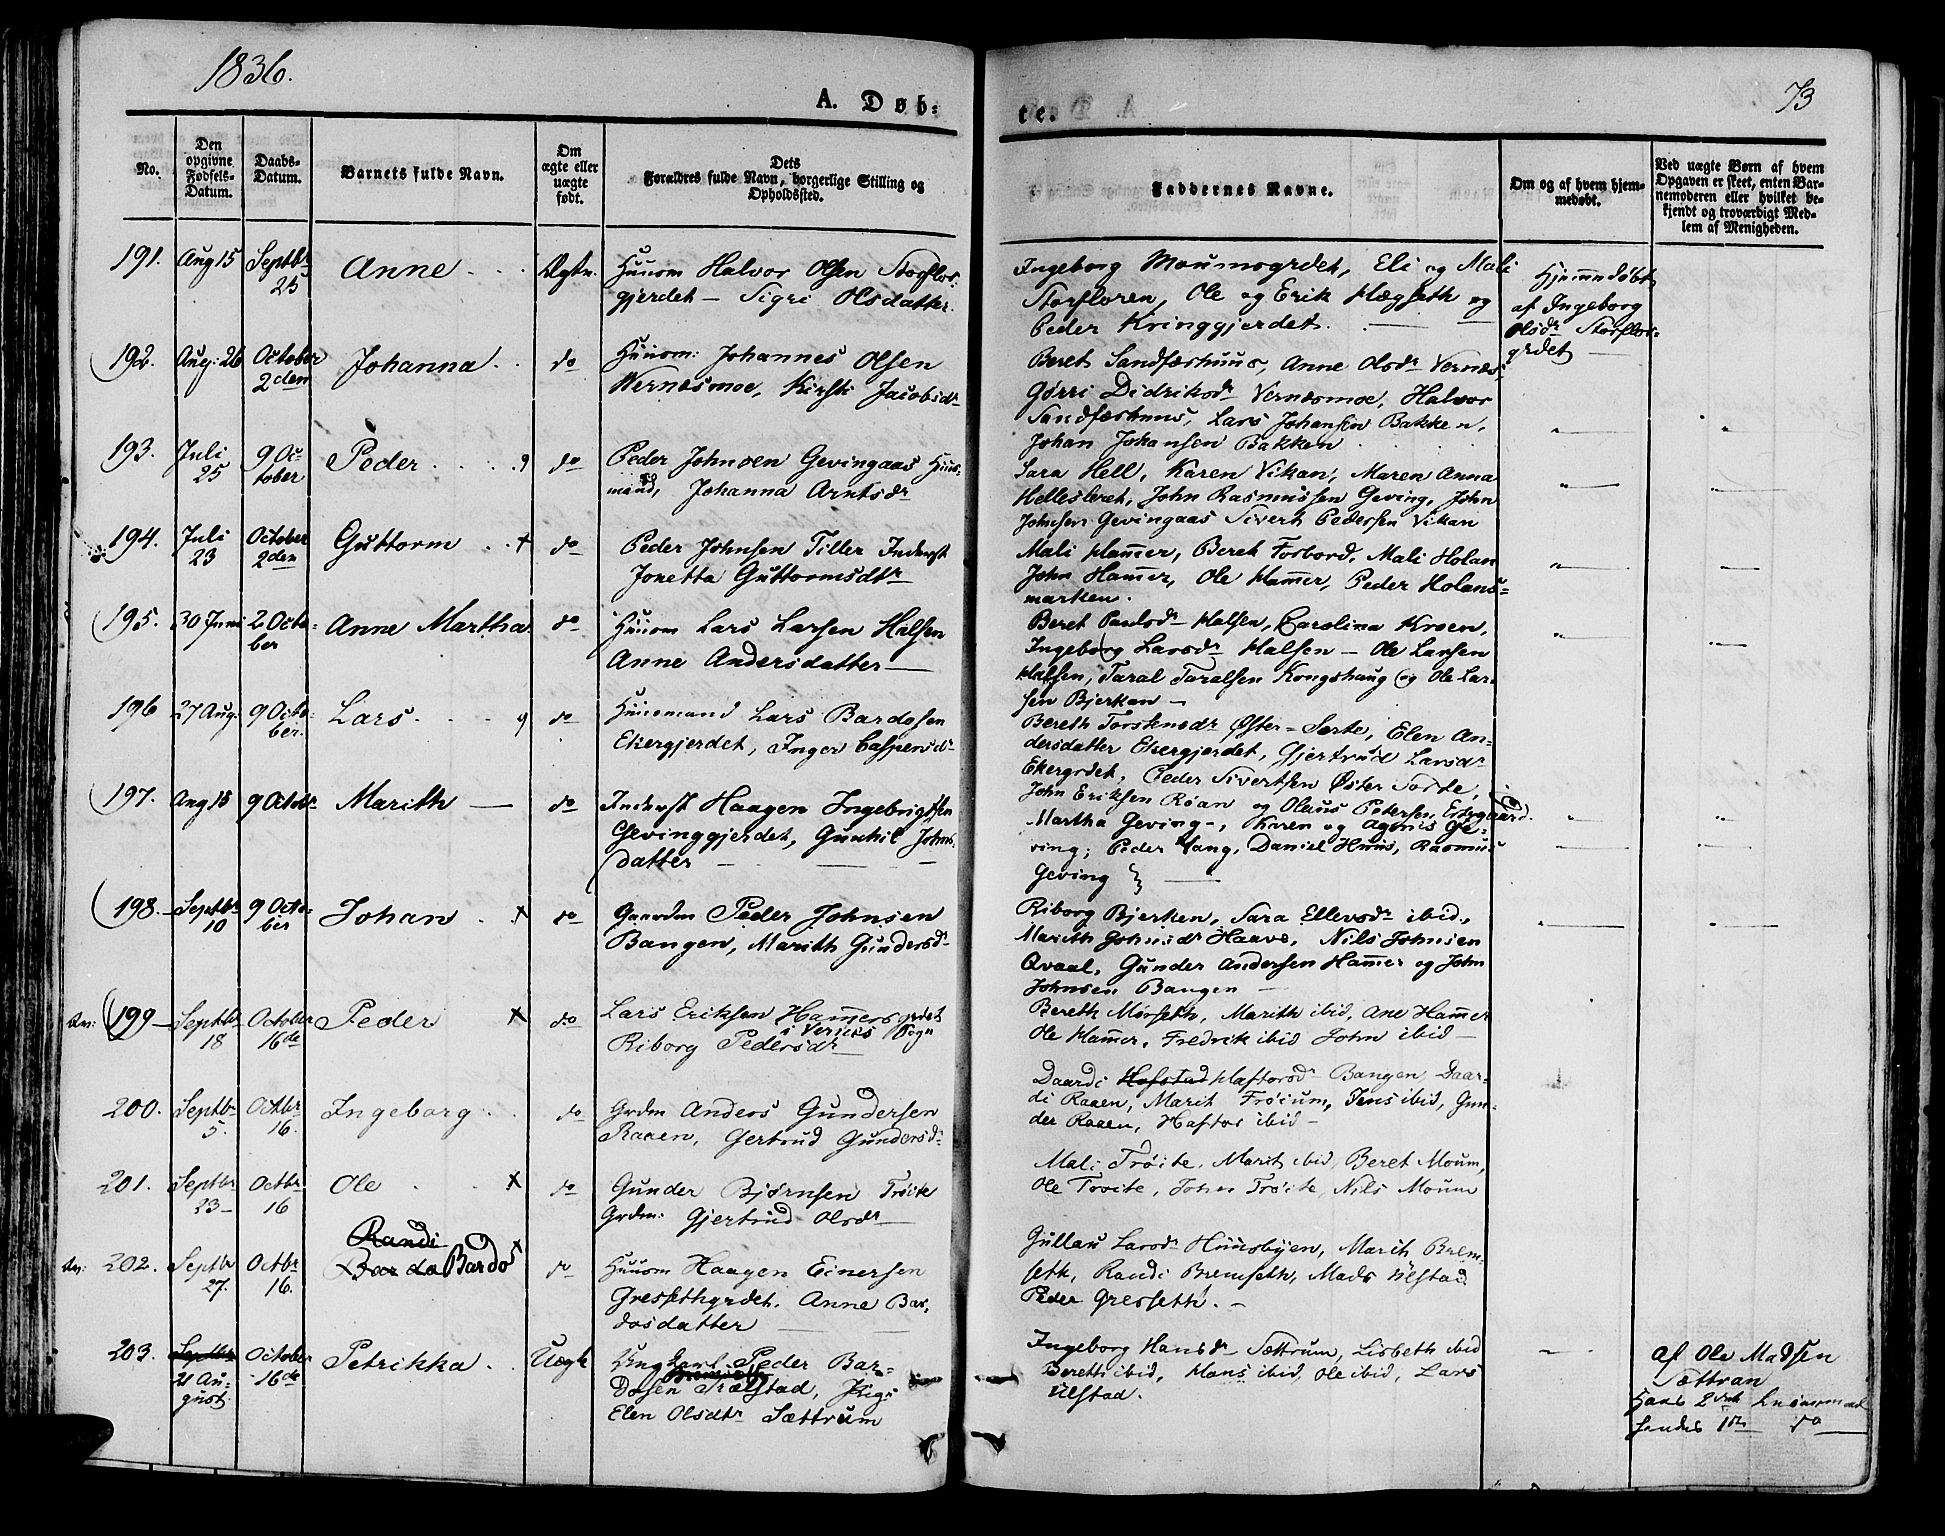 1836.
73
A. Døb=
te.
No.
Den
opgivne
Fødsels-
Datum.
Daabs-
Datum.
Barnets fulde Navn.
Om
ægte eller
uægte
født.
Dets
Forældres fulde Navn, borgerlige Stilling og
Opholdssted.
Faddernes Navne.
Om og af hvem hjem-
medøbt.
Ved uægte Børn af hvem
Opgaven er skeet, enten Bar-
nemoderen eller hvilket be-
kjendt og troværdigt Med-
lem af Menigheden.
191. Aug 15 Septbr 25 Anne Ægte.
Huusm Halvor Olsen Storflor-
gjerdet — Sigri Olsdatter.
Ingeborg Moumsgrdet, Eli og Mali
Storfloren, Ole og Erik Hægseth og
Peder Kringgjerdet.
Hjemmedøbt
af Ingeborg
Olsdr Storflor-
grdet —
192. Aug: 26 October 2den Johanna do
Huusm: Johannes Olsen
Wernesmoe, Kirsti Jacobsdr
Beret Sandfærhuus, Anne Olsdr Vernes,
Gørri Didriksdr Vernesmoe, Halvor
Sandfærhuus, Lars Johansen Bakken,
Johan Johansen Bakken
193. Juli 25 9 Oc-
tober Peder do
Peder Johnsen Gevingaas Huus-
mand, Johanna Arntsdr
Sara Hell, Karen Vikan, Maren Anna
Hellesleret, John Rasmussen Geving, John
Johnsen Gevingaas Sivert Pedersen Vikan
194. Juli 23 October 2den Guttorm + do
Peder Johnsen Tiller Inderst
Jonetta Guttormsdtr
Mali Hammer, Beret Forbord, Mali Holan
John Hammer, Ole Hammer, Peder Holans=
marken.
195. 30 Juni 2 Octo-
ber Anne Martha do
Huusm Lars Larsen Halsen
Anne Andersdatter —
Beret Paulsdr Halsen, Carolina Kroen,
Ingeborg Larsdr Halsen — Ole Larsen
Halsen, Taral Taralsen Kongshaug og Ole Lar-
sen Bjerkan —
196 27 Aug. 9 Octo-
ber. Lars do
Huusmand Lars Bardosen
Ekergjerdet, Inger Caspersdr
Bereth Torstensdr Øster-Sorte, Elen An-
dersdatter Ekergjerdet, Gjertrud Larsdr
Ekergrdet, Peder Sivertsen Øster Sorte,
John Eriksen Røan og Olaus Petersen Eidsgaard.
197. Aug 15 9 Octobr Marith — do
Inderst Haagen Ingebrigtsen
Gevinggjerdet, Gunhil Johns-
datter —
Martha Geving, Karen og Agenis Ge-
ving; Peder Vang, Daniel Huus, Rasmus
Geving
198. Septbr 10 9 Octo-
ber Johan + do
Gaardm Peder Johnsen
Bangen, Marith Gundersdr
Riborg Bjerken, Sara Ellevsdr ibid,
Marith Johnsdr Haave, Nils Johnsen
Qvaal, Gunder Andersen Hammer og John
Johnsen Bangen —
199 Septbr 18 October 16de Peder + do
Lars Eriksen Hammersgrdet
i Vernes Sogn
Riborg Pedersdr
Bereth Morseth, Marith ibid, Ane Hammer
Ole Hammer, Fredrik ibid John ibid —
200. Septbr 5. Octbr 16. Ingeborg do
Grdm Anders Gundersen
Raaen, Gertrud Gundersdr
Daardi Hofstad Haftorsdr Bangen Daar-
di Raaen, Marit Frøium, Jens ibid, Gun-
der Raaen, Haftor ibid —
201. Septbr 23 — Octbr 16 Ole + do
Gunder Bjørnsen Trøite
Grdm: Gjertrud Olsdr
Mali Trøite, Marit ibid, Beret Moum,
Ole Troite, John Trøite, Nils Moum
202. Septbr 27. Octbr 16. Randi Bardo Bardo + do
Huusm Haagen Einersen
Gressethgrdet, Anne Bar-
dosdatter
Gullau Larsdr Huusbyen, Marit Brem-
seth, Randi Bremseth, Mads Ulstad
Peder Gresseth. —
203. Septbr 21 Au-
gust. October 16de Petrikka Uægte
Ungkarl Peder Bar-
dosen Trælstad, Pige
Elen Olsdtr Sættrum
Ingeborg Hansdr Sættrum, Lisbeth ibid
Bereth ibid, Hans ibid, Ole ibid, Lars
Ulstad.
af Ole Madsen
Sættran
Hans 2det
hendes 1ste do